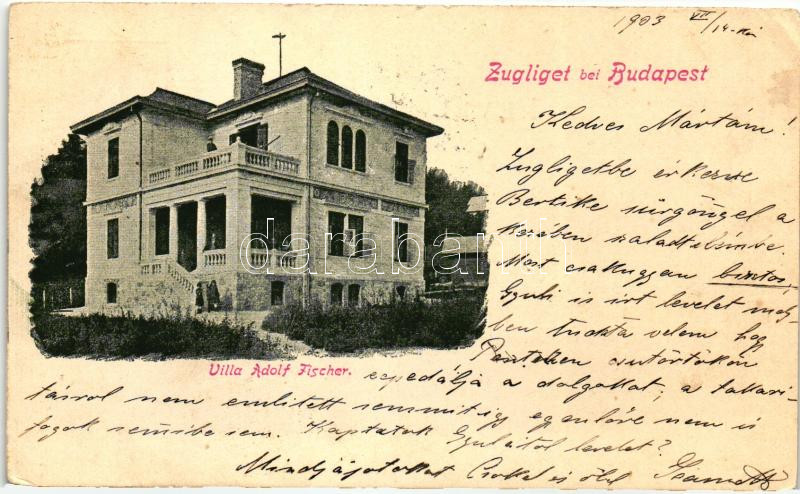 1903 VII/14-én
Zugliget bei Budapest
Kedves Mártám!
Zugligetbe érkezve
Bertike sürgönygel a
kezében szaladt elémbe.
Most csakugyan biztos
Gyuli is irt levelet mely-
ben tudata velem hogy
Pénteken csütörtökön
Villa Adolf Fischer.
expedálja a dolgokat; a takari-
tásról nem emlitett semmit igy egyenlőre nem is
fogok semmibe sem. Kaptatok Gyulától levelet?
Mindjájotokat Csókol és ölel
darabanth